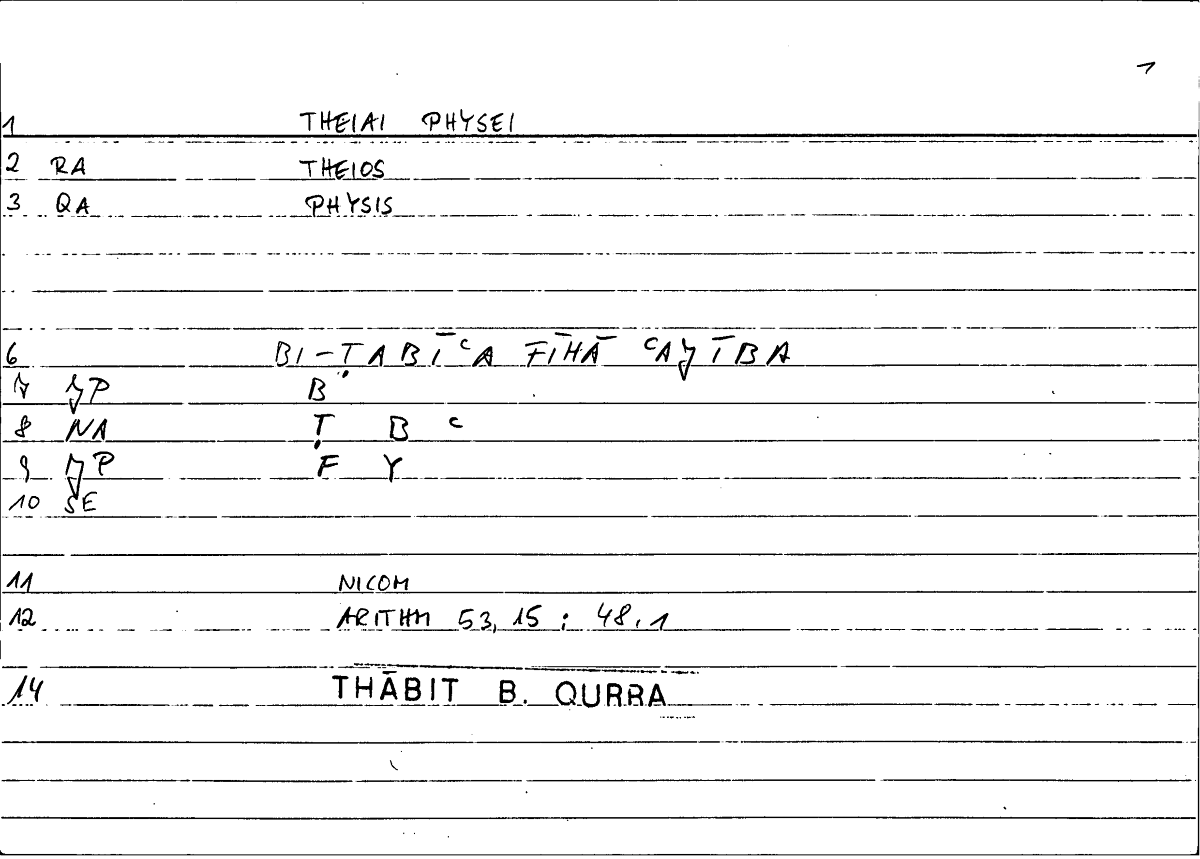 1
1 THEIAI PHYSEI
2 RA THEIOS
3 QA PHYSIS
6 BI-ṬABĪᶜA FĪHĀ ᶜAJĪBA
7 JP B
8 NA Ṭ B ᶜ
9 JP F Y
10 SE
11 NICOM
12 ARITHM 53,15 ; 48,1
14 THĀBIT B. QURRA